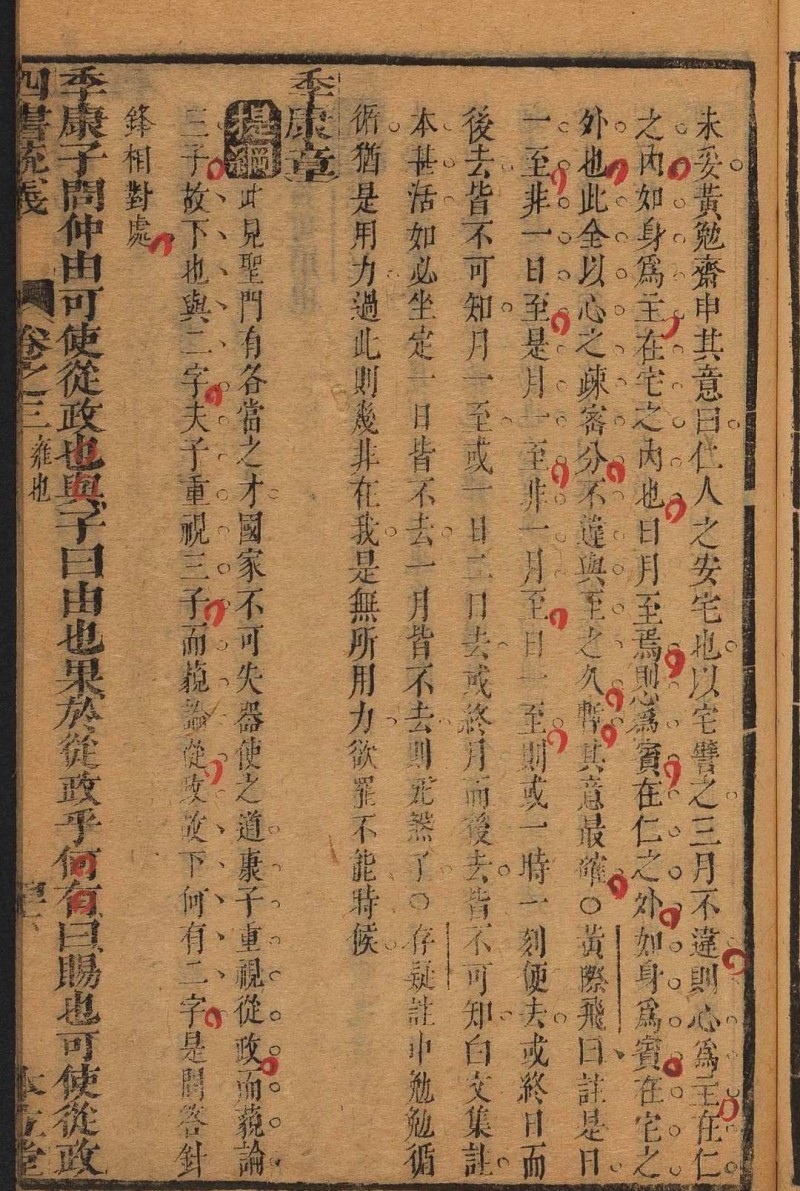 未妥黃勉齋申其意曰仁人之安宅也以宅譬之三月不違則心為主在仁
之內如身為主在宅之內也日月至焉則心為賓在仁之外如身為賓在宅之
外也此全以心之疎密分不違與至之久暫其意最確○黃際飛曰註是日
一至非一日至是月一至非一月至日一至則或一時一刻便去或終日而
後去皆不可知月一至或一日二日去或終月而後去皆不可知白文集註
本甚活如必坐定一日皆不去一月皆不去則死煞了○存疑註中勉勉循
循猶是用力過此則幾非在我是無所用力欲罷不能時候
季康章
提綱 此見聖門有各當之才國家不可失器使之道康子重視從政而藐論
三子故下也與二字夫子重視三子而藐論從政故下何有二字是問答針
鋒相對處
季康子問仲由可使從政也與子曰由也果於從政乎何有曰賜也可使從政
四書 卷之三 雍也